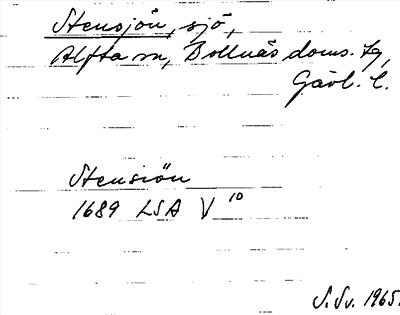 Stensjön, sjö,
Alfta sn, Bollnäs doms. tg,
Gävl. l.
Stensiön
1689 LSA V 10
S.Sv. 1965.